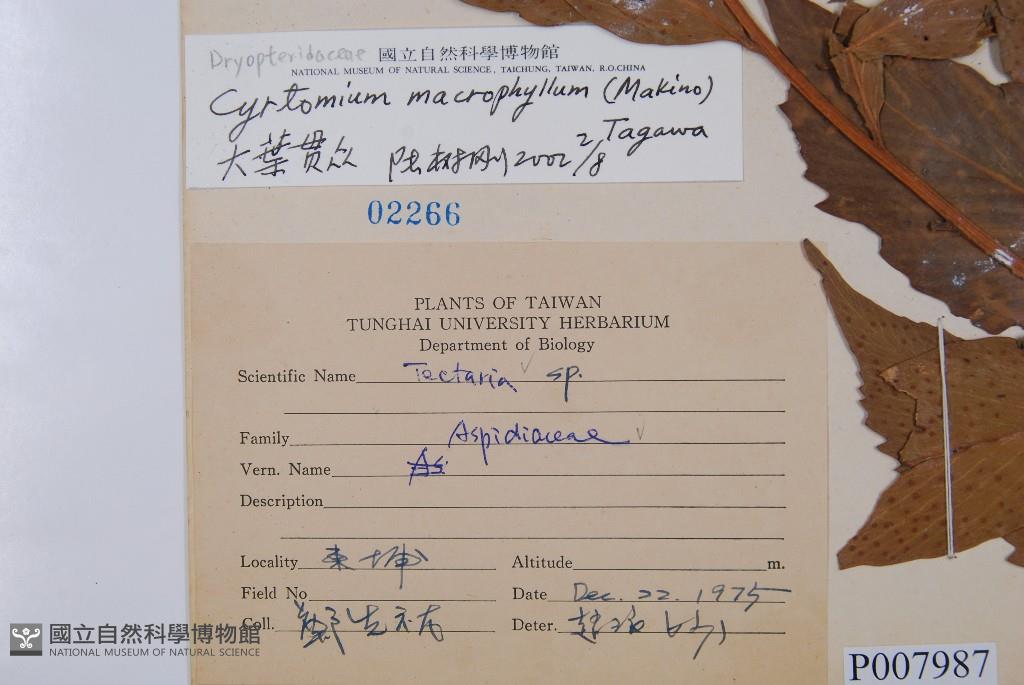 Dryopteridaceae 國立自然科學博物館
NATIONAL MUSEUM OF NATURAL SCIENCE, TAICHUNG, TAIWAN, R.O.CHINA
Cyrtomium macrophyllum (Makino)
Tagawa
大葉貫众 2002 2/8
02266
PLANTS OF TAIWAN
TUNGHAI UNIVERSITY HERBARIUM
Department of Biology
Scientific Name Tectaria sp.
Family Aspidiaceae
Vern. Name As
Description
Locality 東埔 Altitude m.
Field No Date Dec. 22. 1975
Coll. 鄭先祐 Deter.
國立自然科學博物館
NATIONAL MUSEUM OF NATURAL SCIENCE
P007987